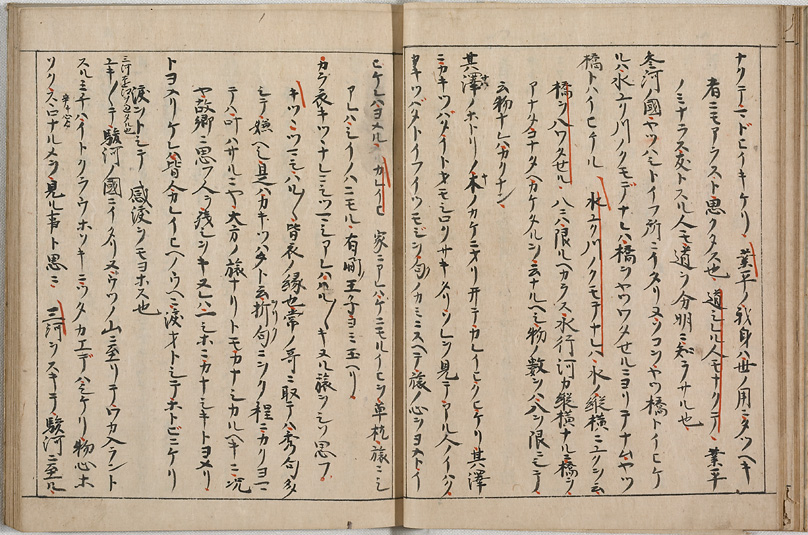 ナクテマドヒイキケリ 業平ノ我身ハ世ノ用ニタツヘキ
者ニモアラスト思クタス也 道シレル人モナクテ 業平
ノミナラス友トスル人モ道ヲ分明ニ知ラサル也
参河ノ國ヤツハシトイフ所ニイタリヌソコヲヤツ橋トイヒケ
ルハ水ユク川ノクモデナレハ橋ヲヤツワタセルニヨリテナムヤツ
橋トハイヒケル 水ユク川ノクモテナレハ 水ノ縦横ニユクヲ云
橋ヲ八ワタセル 八ニ限ルヘカラス 水行河カ縦横ナルニ橋ヲ
アナタコナタヘカケタルヲ云ナルヘシ物ノ数ヲハ八ヲ限ニシテ
云物ナレハカクナン
其澤ノホトリノ木ノカケニオリ井テカレイヒクヒケリ其澤
ニカキツバタイトオモシロクサキタリソレヲ見テアル人ノイハク
カキツバタトイフイツモジヲ句ノカミニスヘテ旅ノ心ヲヨメトイ
ヒケレハヨメル カレイヒ 家ニアレハケニモルイヒヲ草枕旅ニシ
アレハシイノハニモル 有間王子ヨミ玉ヘリ
カラ衣キツヽナレニシツマシアレハハル／＼キヌル旅ヲシソ思フ
キツヽツマハル／＼皆衣ノ縁也常ノ哥ニ取テハ秀句多
シテ嫌ヘシ是ハカキツハタト云折句ニシタル程ニカクヨマ
テハ叶ハサルニヤ大方ノ旅ナリトモカナシカルヘキニ況
ヤ故郷ニ思フ人ヲ残シヲキ又ハ一シホニカナシキトヨメリ
トヨメリケレハ皆人カレイヒノウヘニ涙オトシテホトビニケリ
涙ヲトシテ 感涙ヲモヨホス也
ユキ／＼テ駿河ノ國ニイタリヌウツノ山ニ至リテワカイラント
スルミチハイトクラウホソキニツタカエデハシケリ物心ホ
ソクスヽロナルメヲ見ル事ト思ニ 三河ヲスキテ駿河ニ至ル